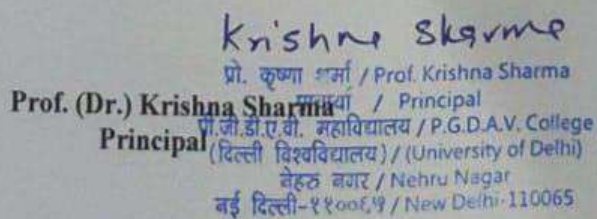 Krishna Sharma
प्रो. कृष्णा शर्मा / Prof. Krishna Sharma
Prof. (Dr.) Krishna Sharma
प्राचार्या / Principal
Principal
पी.जी.डी.ए.वी. महाविद्यालय / P.G.D.A.V. College
(दिल्ली विश्वविद्यालय) / (University of Delhi)
नेहरु नगर / Nehru Nagar
नई दिल्ली-११००६५ / New Delhi-110065